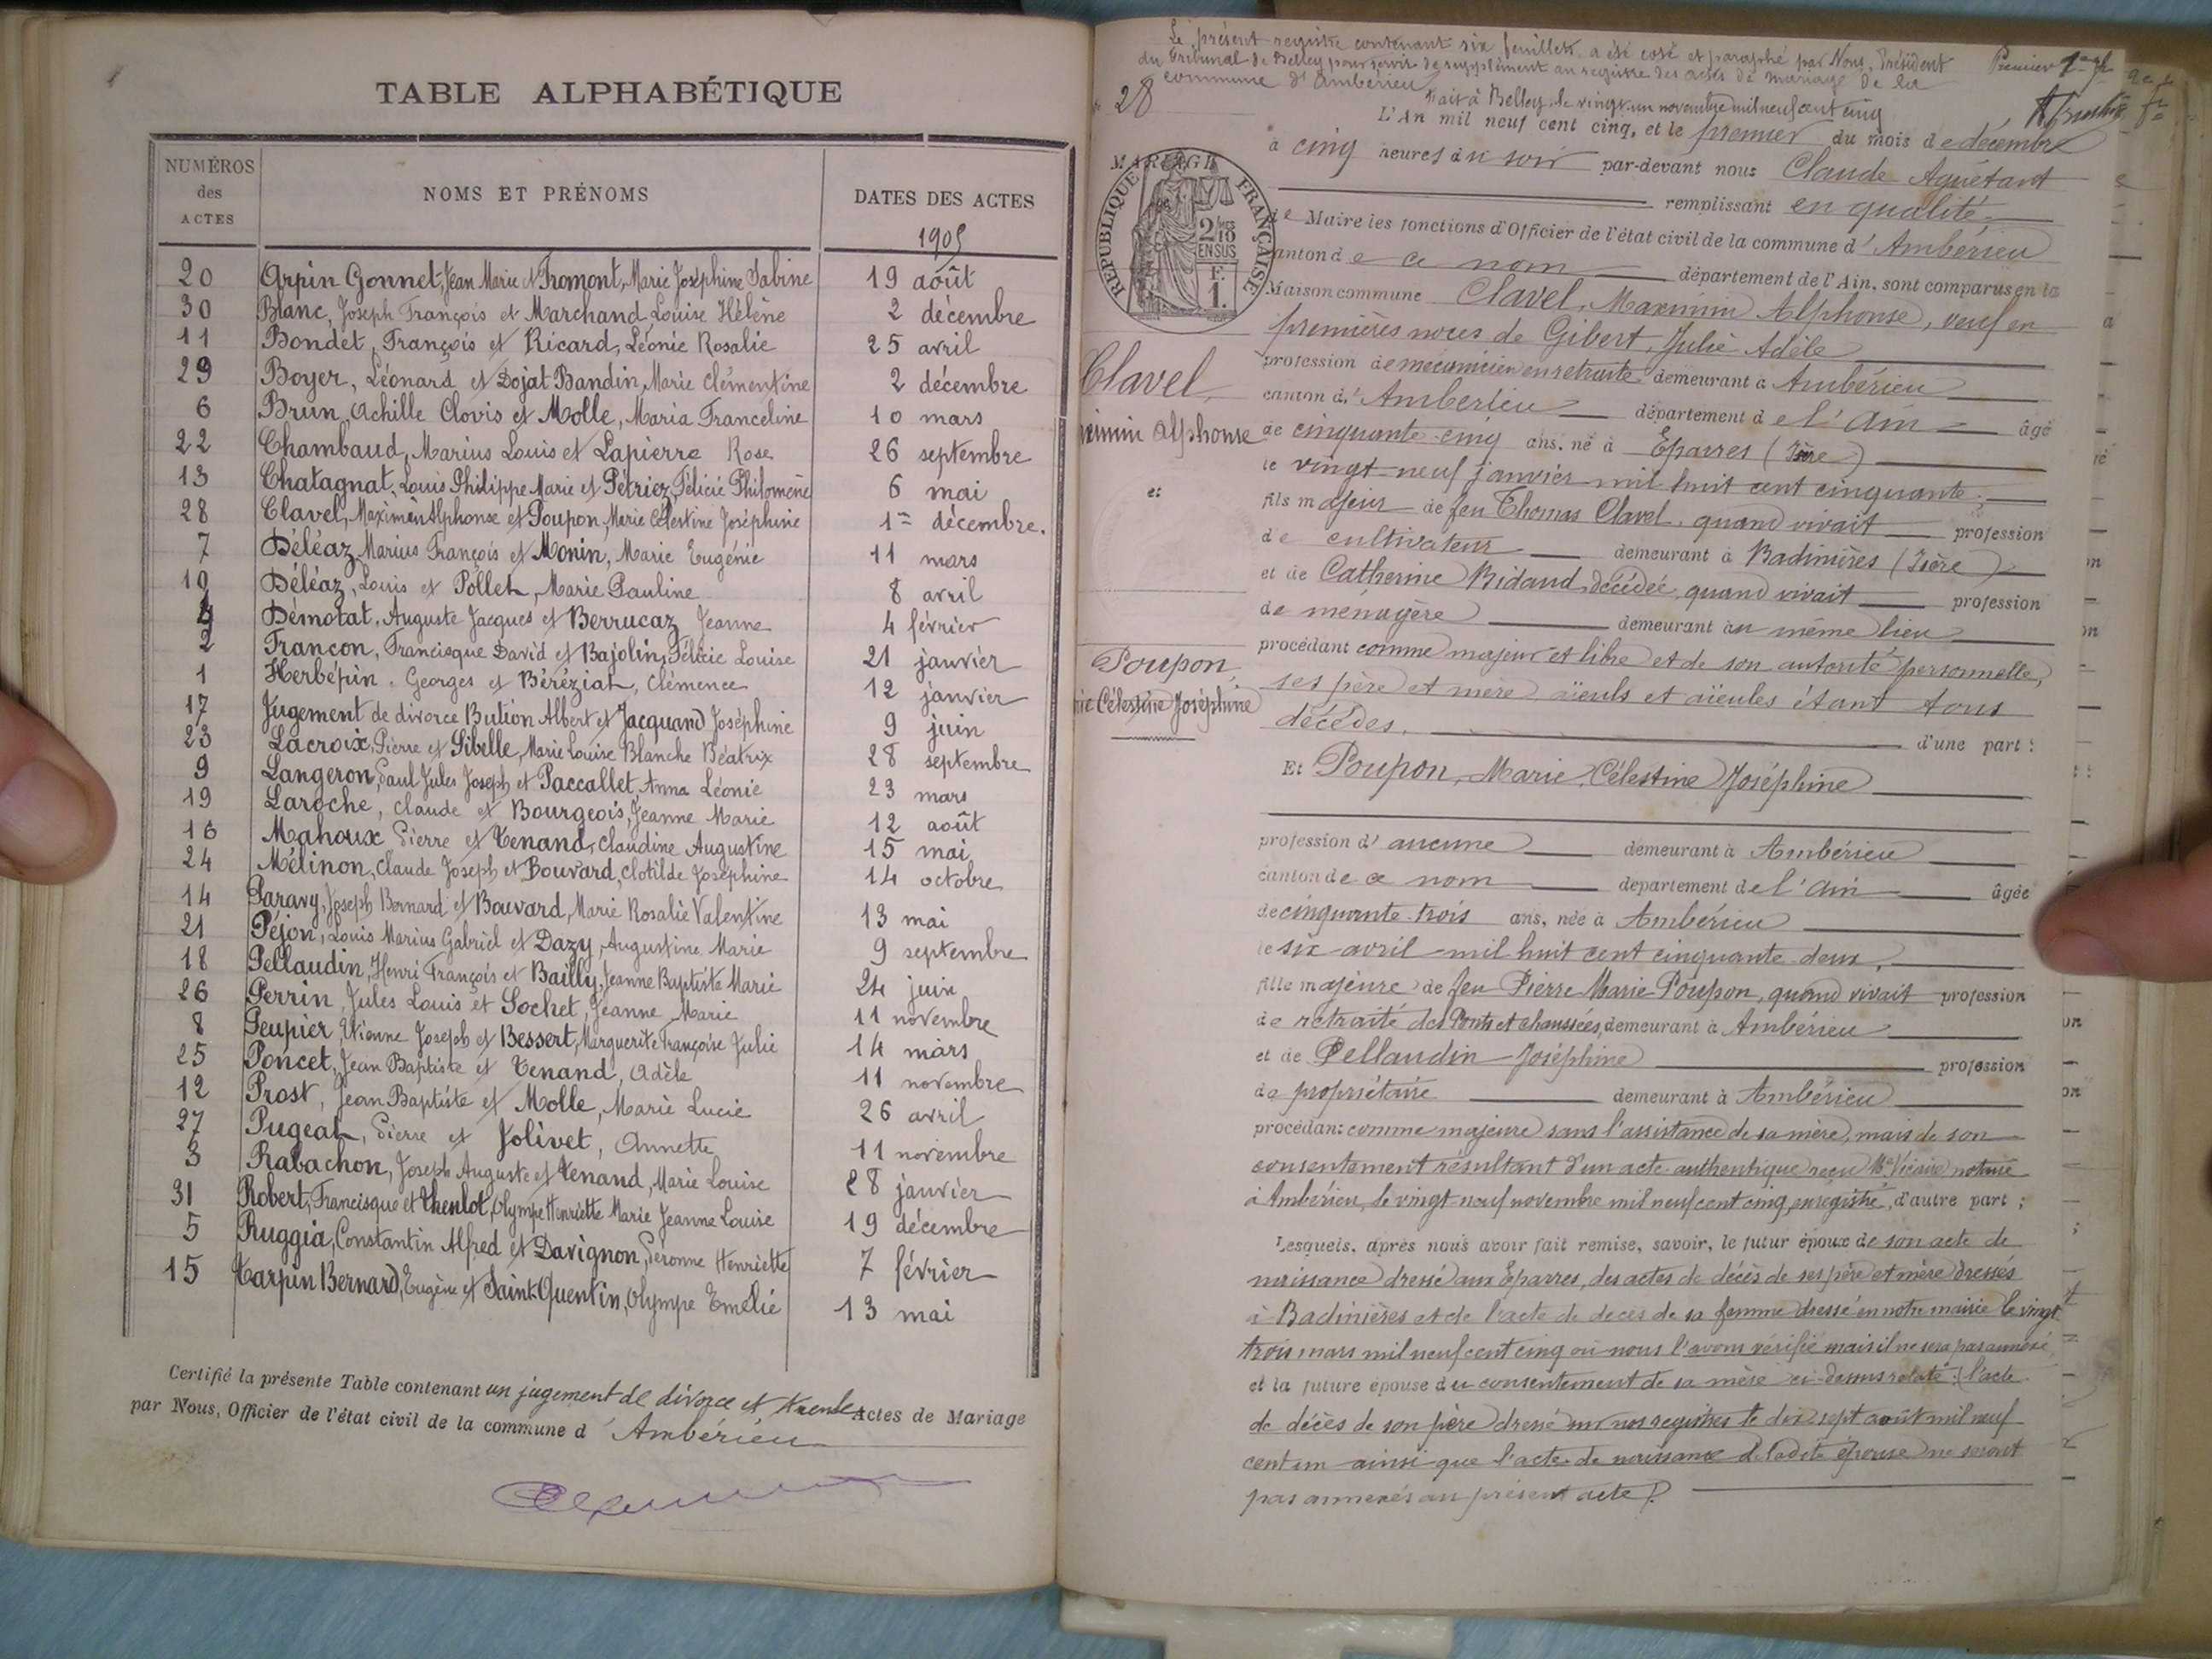 TABLE ALPHABÉTIQUE
NUMÉROS des ACTES
NOMS ET PRÉNOMS
DATES DES ACTES
1905
20 Arpin Gonnet, Jean Marie et Fromont, Marie Joséphine Sabine 19 août
30 Blanc, Joseph François et Marchand Louise Hélène 2 décembre
11 Bondet, François et Ricard, Léonie Rosalie 25 avril
29 Boyer, Léonard et Dojat Bandin, Marie Clémentine 2 décembre
6 Brun, Achille Clovis et Molle, Maria Franceline 10 mars
22 Chambaud, Marius Louis et Lapierre Rose 26 septembre
13 Chatagnat, Louis Philippe Marie et Pétriez, Félicie Philomène 6 mai
28 Clavel, Maximin Alphonse et Poupon, Marie Célestine Joséphine 1er décembre.
7 Déléaz, Marius François et Monin, Marie Eugénie 11 mars
10 Déléaz, Louis et Pollet, Marie Pauline 8 avril
4 Démotat, Auguste Jacques et Berrucaz Jeanne 4 février
2 Françon, Francisque David et Bajolin, Félicie Louise 21 janvier
1 Herbépin, Georges et Béréziat, Clémence 12 janvier
17 Jugement de divorce Bution Albert et Jacquand Joséphine 9 juin
23 Lacroix, Pierre et Sibelle, Marie Louise Blanche Béatrix 28 septembre
9 Langeron, Paul Jules Joseph et Paccallet, Anna Léonie 23 mars
19 Laroche, Claude et Bourgeois, Jeanne Marie 12 août
16 Mahoux Pierre et Tenand, Claudine Augustine 15 mai
24 Mélinon, Claude Joseph et Bouvard, Clotilde Joséphine 14 octobre
14 Paravy, Joseph Bernard et Bouvard, Marie Rosalie Valentine 13 mai
21 Péjon, Louis Marius Gabriel et Dazy, Augustine Marie 9 septembre
18 Pellaudin, Henri François et Bailly, Jeanne Baptiste Marie 24 juin
26 Perrin, Jules Louis et Sochet, Jeanne Marie 11 novembre
8 Peupier, Etienne Joseph et Bessert, Marguerite Françoise Julie 14 mars
25 Poncet, Jean Baptiste et Tenand, Adèle 11 novembre
12 Prost, Jean Baptiste et Molle, Marie Lucie 26 avril
27 Pugeat, Pierre et Jolivet, Annette 11 novembre
3 Rabachon, Joseph Auguste et Tenand, Marie Louise 28 janvier
31 Robert, Francisque et Thenlot, Olympe Henriette Marie Jeanne Louise 19 décembre
5 Ruggia, Constantin Alfred et Davignon, Péronne Henriette 7 février
15 Tarpin Bernard, Eugène et Saint-Quentin, Olympe Emélie 13 mai
Certifié la présente Table contenant un jugement de divorce et trente Actes de Mariage
par Nous, Officier de l'état civil de la commune d'Ambérieu
Le présent registre contenant six feuillets a été coté et paraphé par Nous, Président
du Tribunal de Belley pour servir de supplément au registre des actes de mariage de la
commune d'Ambérieu
Premier
28
Fait à Belley, le vingt-un novembre mil neuf cent cinq
L'An mil neuf cent cinq, et le premier du mois de décembre
à cinq heures du soir par-devant nous Claude Aguétant
MARIAGE
RÉPUBLIQUE FRANÇAISE
2/10 EN SUS
F. 1.
remplissant en qualité
de Maire les fonctions d'Officier de l'état civil de la commune d'Ambérieu
canton de ce nom département de l'Ain, sont comparus en la
Maison commune Clavel, Maximin Alphonse, veuf en
premières noces de Gibert, Julie Adèle
Clavel,
profession de mécanicien en retraite demeurant à Ambérieu
canton d'Ambérieu département de l'Ain âgé
ximin Alphonse
de cinquante-cinq ans, né à Eparres (Isère)
le vingt-neuf janvier mil huit cent cinquante
et
fils majeur de feu Thomas Clavel, quand vivait profession
de cultivateur demeurant à Badinières (Isère)
et de Catherine Bidaud, décédée, quand vivait profession
de ménagère demeurant au même lieu
procédant comme majeur et libre et de son autorité personnelle,
Poupon,
ses père et mère aïeuls et aïeules étant tous
rie Célestine Joséphine
décédés. d'une part :
Et Poupon, Marie Célestine Joséphine
profession d'aucune demeurant à Ambérieu
canton de ce nom département de l'Ain âgée
de cinquante-trois ans, née à Ambérieu
le six avril mil huit cent cinquante-deux,
fille majeure de feu Pierre Marie Poupon, quand vivait profession
de retraité des Ponts et chaussées, demeurant à Ambérieu
et de Pellaudin Joséphine profession
de propriétaire demeurant à Ambérieu
procédant comme majeure sans l'assistance de sa mère, mais de son
consentement résultant d'un acte authentique reçu Me notaire
à Ambérieu, le vingt-neuf novembre mil neuf cent cinq, enregistré, d'autre part ;
Lesquels, après nous avoir fait remise, savoir, le futur époux de son acte de
naissance dressé aux Eparres, des actes de décès de ses père et mère dressés
à Badinières et de l'acte de décès de sa femme dressé en notre mairie le vingt
trois mars mil neuf cent cinq où nous l'avons vérifié mais il ne sera pas annexé
et la future épouse du consentement de sa mère ci-dessus relaté : l'acte
de décès de son père dressé sur nos registres le dix sept août mil neuf
cent un ainsi que l'acte de naissance de ladite épouse ne seront
pas annexés au présent acte.